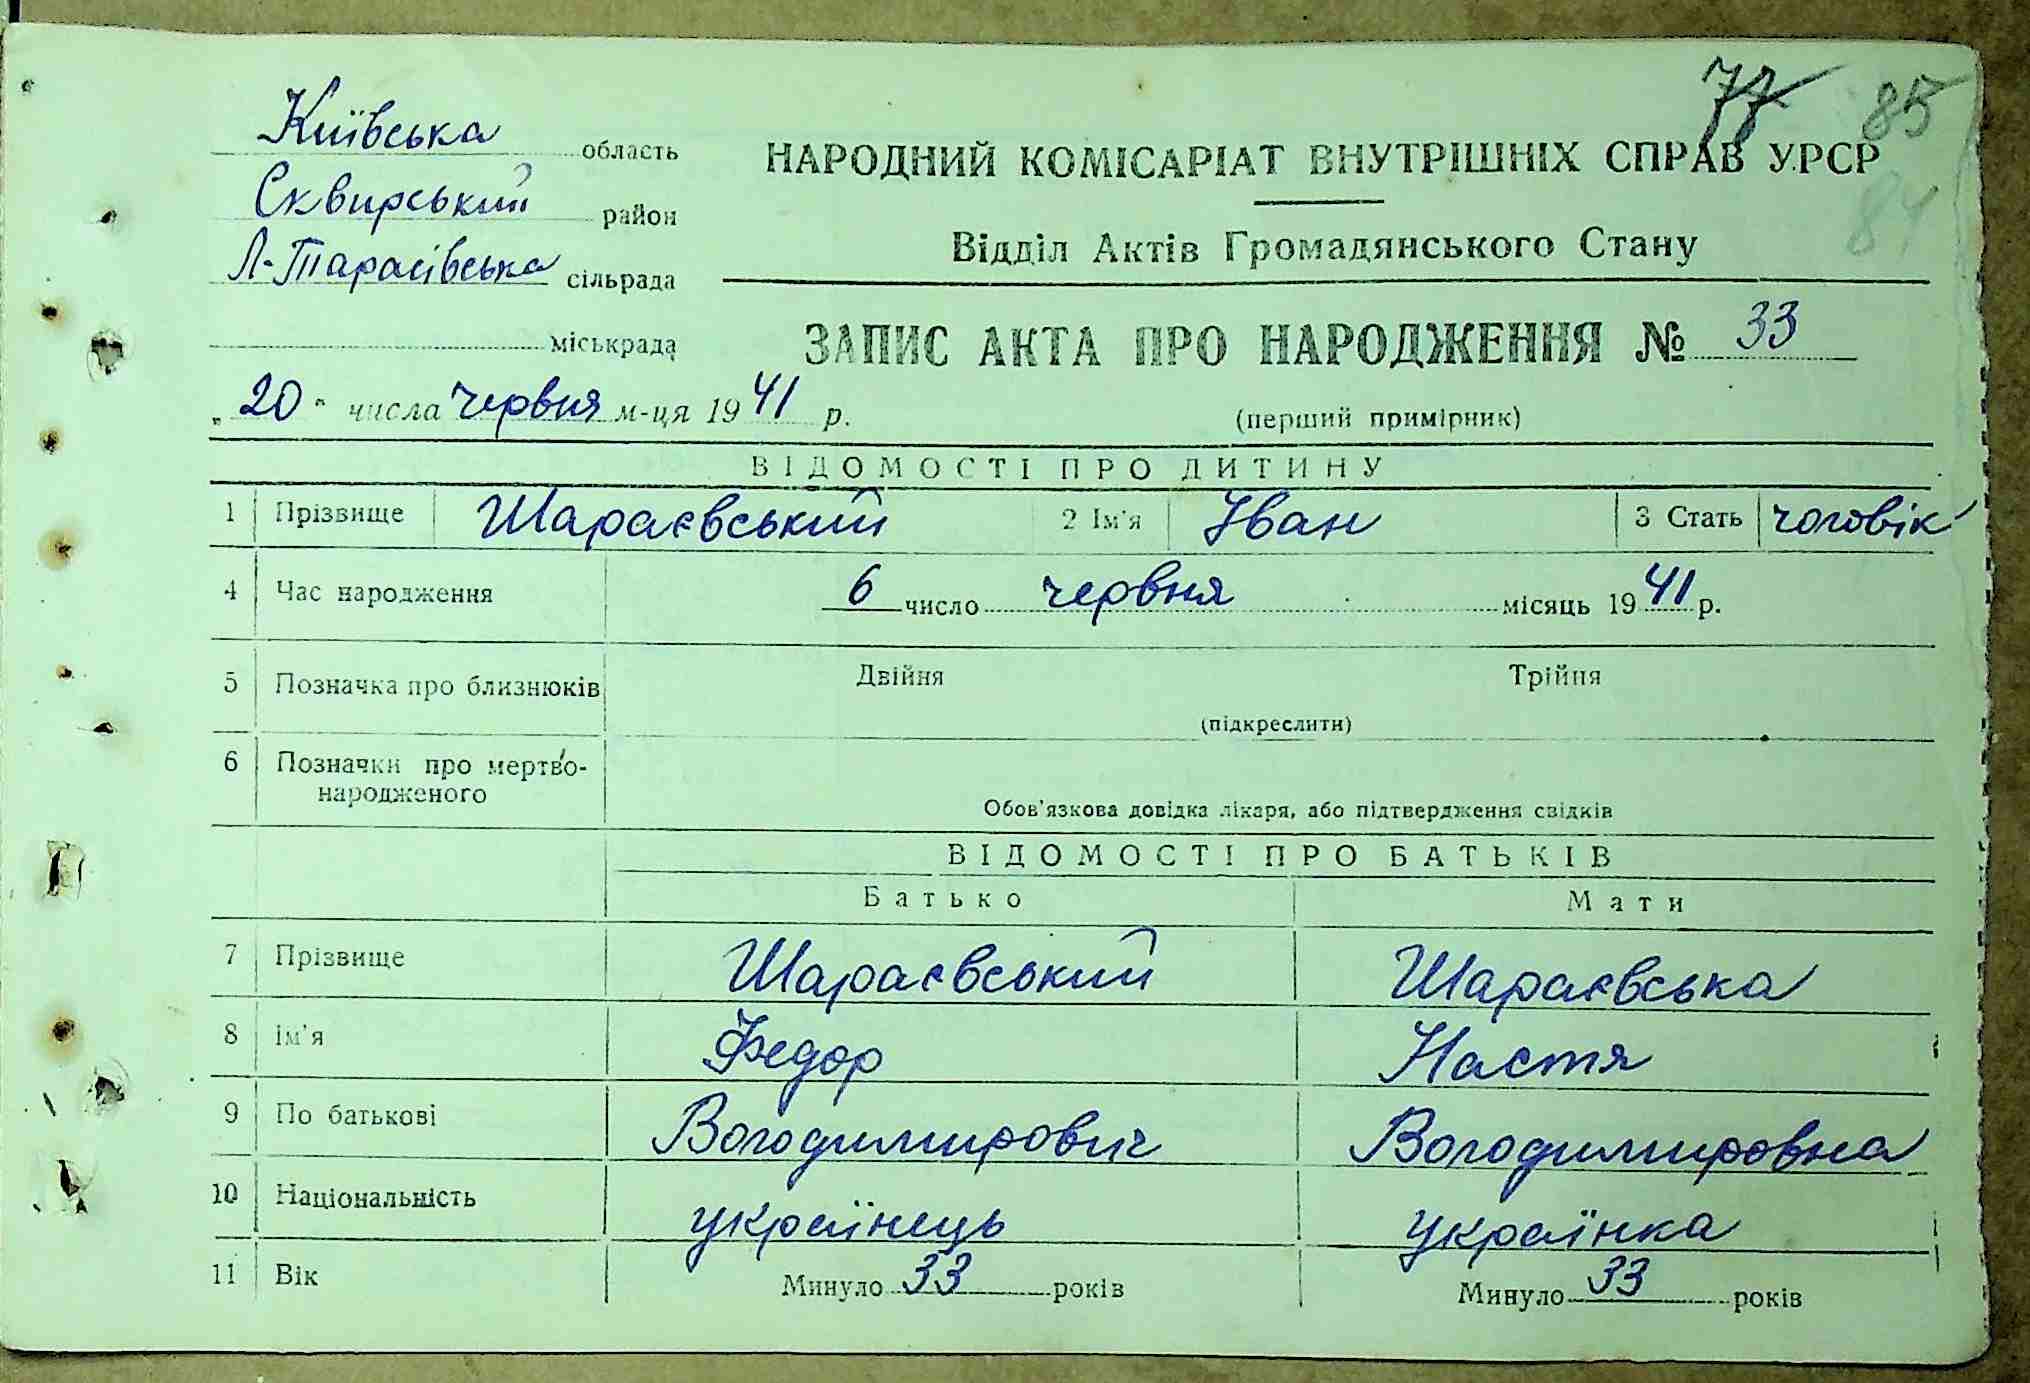 77 85
84
Київська область
Сквирський район
Л-Тарасівська сільрада
міськрада
НАРОДНИЙ КОМІСАРІАТ ВНУТРІШНІХ СПРАВ УРСР
Відділ Актів Громадянського Стану
ЗАПИС АКТА ПРО НАРОДЖЕННЯ № 33
(перший примірник)
„20" числа червня м-ця 1941 р.
ВІДОМОСТІ ПРО ДИТИНУ
1 Прізвище Шараєвський 2 Ім'я Іван 3 Стать чоловік
4 Час народження 6 число червня місяць 1941 р.
5 Позначка про близнюків Двійня Трійня
(підкреслити)
6 Позначки про мертво-
народженого
Обов'язкова довідка лікаря, або підтвердження свідків
ВІДОМОСТІ ПРО БАТЬКІВ
Батько Мати
7 Прізвище Шараєвський Шараєвська
8 Ім'я Федор Настя
9 По батькові Володимирович Володимировна
10 Національність українець українка
11 Вік Минуло 33 років Минуло 33 років